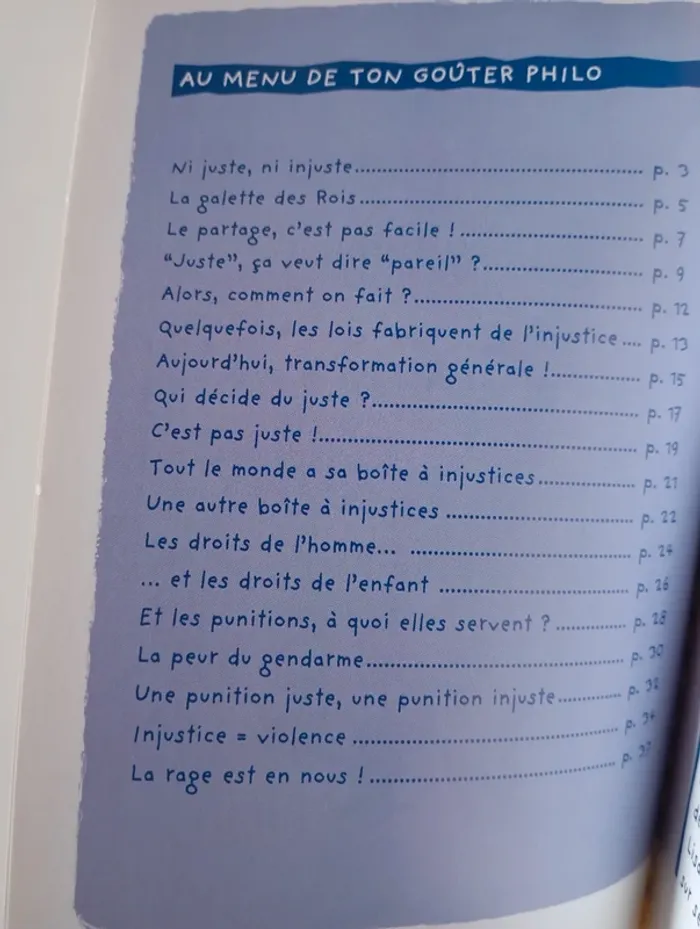 AU MENU DE TON GOÛTER PHILO
Ni juste, ni injuste................ p. 3
La galette des Rois................ p. 5
Le partage, c'est pas facile !................ p. 7
"Juste", ça veut dire "pareil" ?................ p. 9
Alors, comment on fait ?................ p. 12
Quelquefois, les lois fabriquent de l'injustice.... p. 13
Aujourd'hui, transformation générale !................ p. 15
Qui décide du juste ?................ p. 17
C'est pas juste !................ p. 19
Tout le monde a sa boîte à injustices................ p. 21
Une autre boîte à injustices ................ p. 22
Les droits de l'homme... ................ p. 24
... et les droits de l'enfant ................ p. 26
Et les punitions, à quoi elles servent ?............ p. 28
La peur du gendarme................ p. 30
Une punition juste, une punition injuste............ p. 32
Injustice = violence ................ p. 34
La rage est en nous !................ p. 37